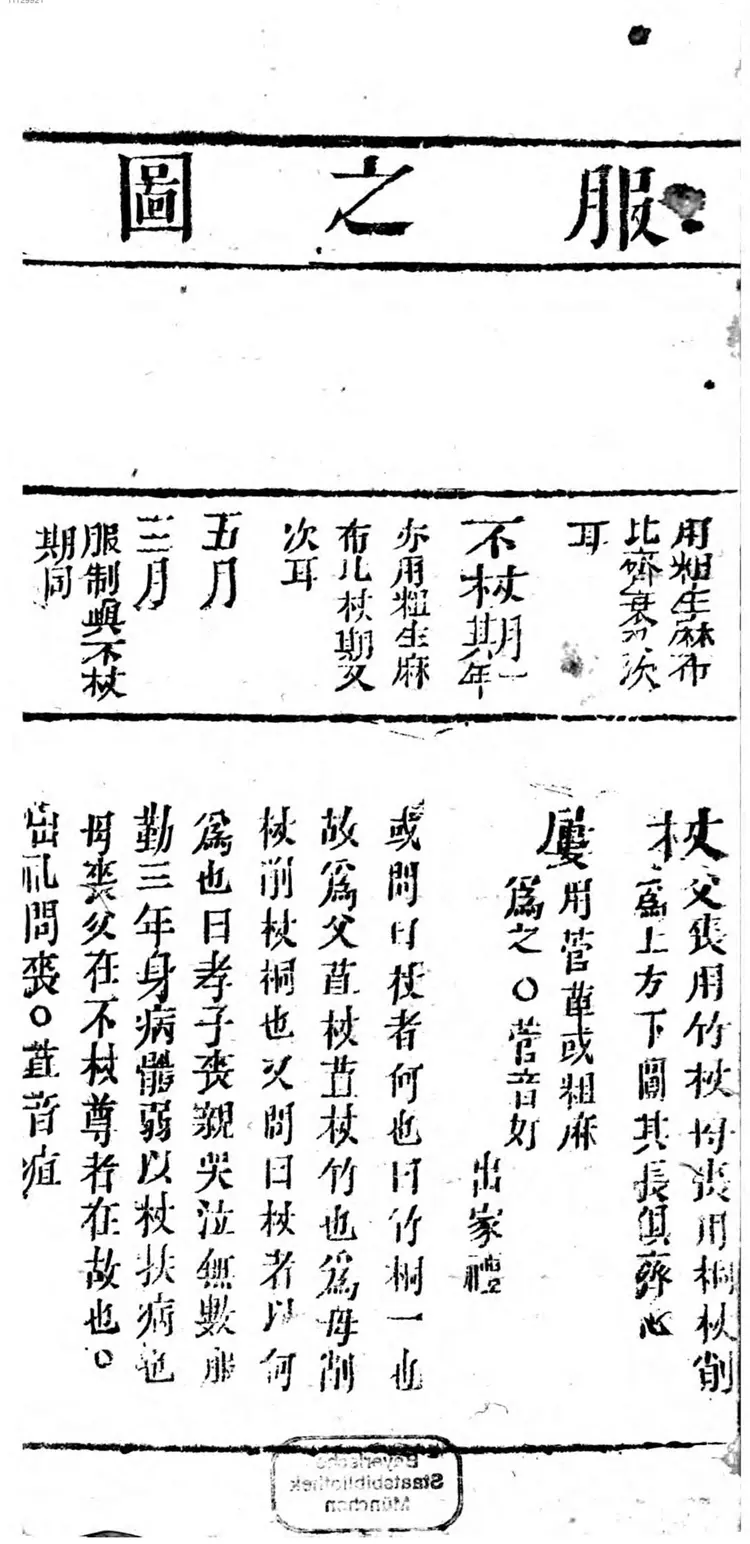 服之圖
用粗生麻布
比齊衰又次
耳
不杖期一年
亦用粗生麻
布比杖期又
次耳
五月
三月
服制與不杖
期同
杖父喪用竹杖母喪用桐杖削
為上方下圓其長俱齊心
屨用菅草或粗麻
為之○菅音奸
出家禮
或問曰杖者何也曰竹桐一也
故為父苴杖苴杖竹也為母削
杖削杖桐也又問曰杖者以何
為也曰孝子喪親哭泣無數服
勤三年身病體弱以杖扶病也
母喪父在不杖尊者在故也○
出礼問喪○苴音疽
Bayerische
Staatsbibliothek
München